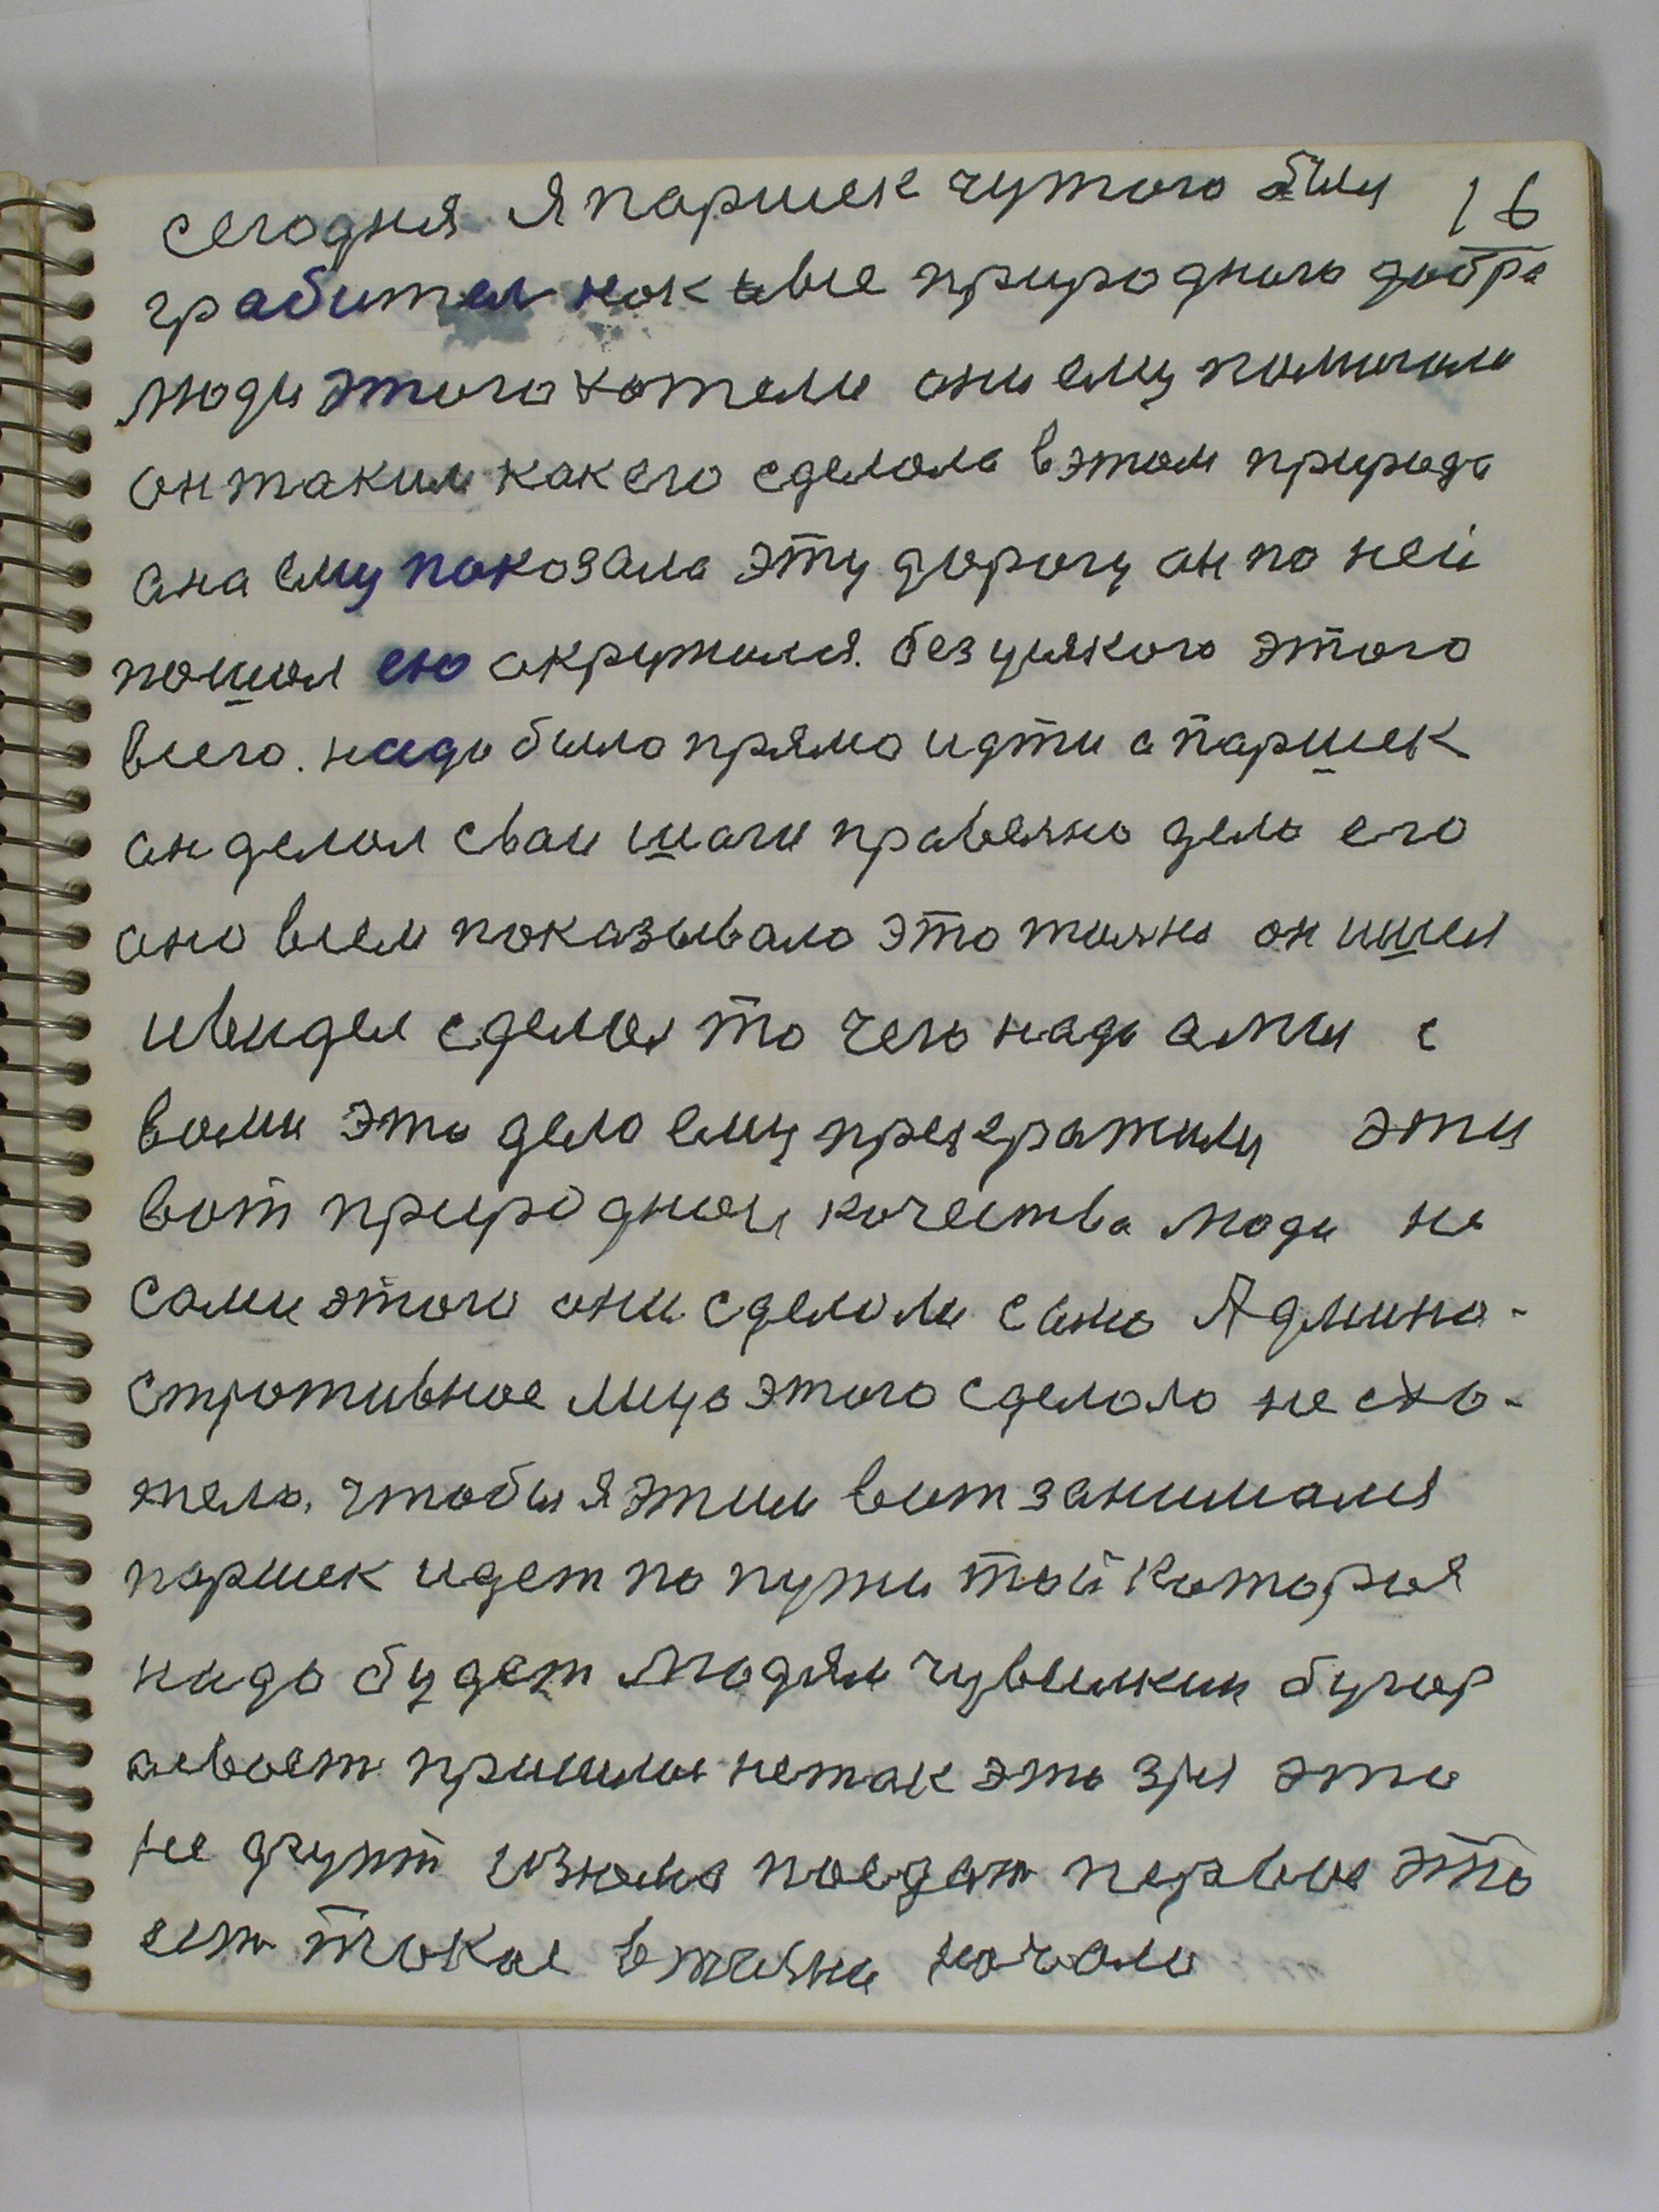 сегодня я паршек чутого был 16
грабител как и все природного добра
люди этого хотели они ему помогали
он таким как его сделала в этом природа
она ему показала эту дорогу он по ней
пошол ею окружился. без усякого этого
всего. надо было прямо идти а паршек
он делал сваи шаги правельно дело его
оно всем показывало это тольно он ишел
и видел сделал то чего надо а мы с
вами это дело ему прекратили эти
вот природнои качества люди не
сами этого они сделали само Админа-
стративное лицо этого сделало не схо-
тело, чтобы я этим вот занимался
паршек идет по пути той которыя
надо будет людям чувилкин бугор
пришлос не так это зря это
не дадут первое это
ест такое начало